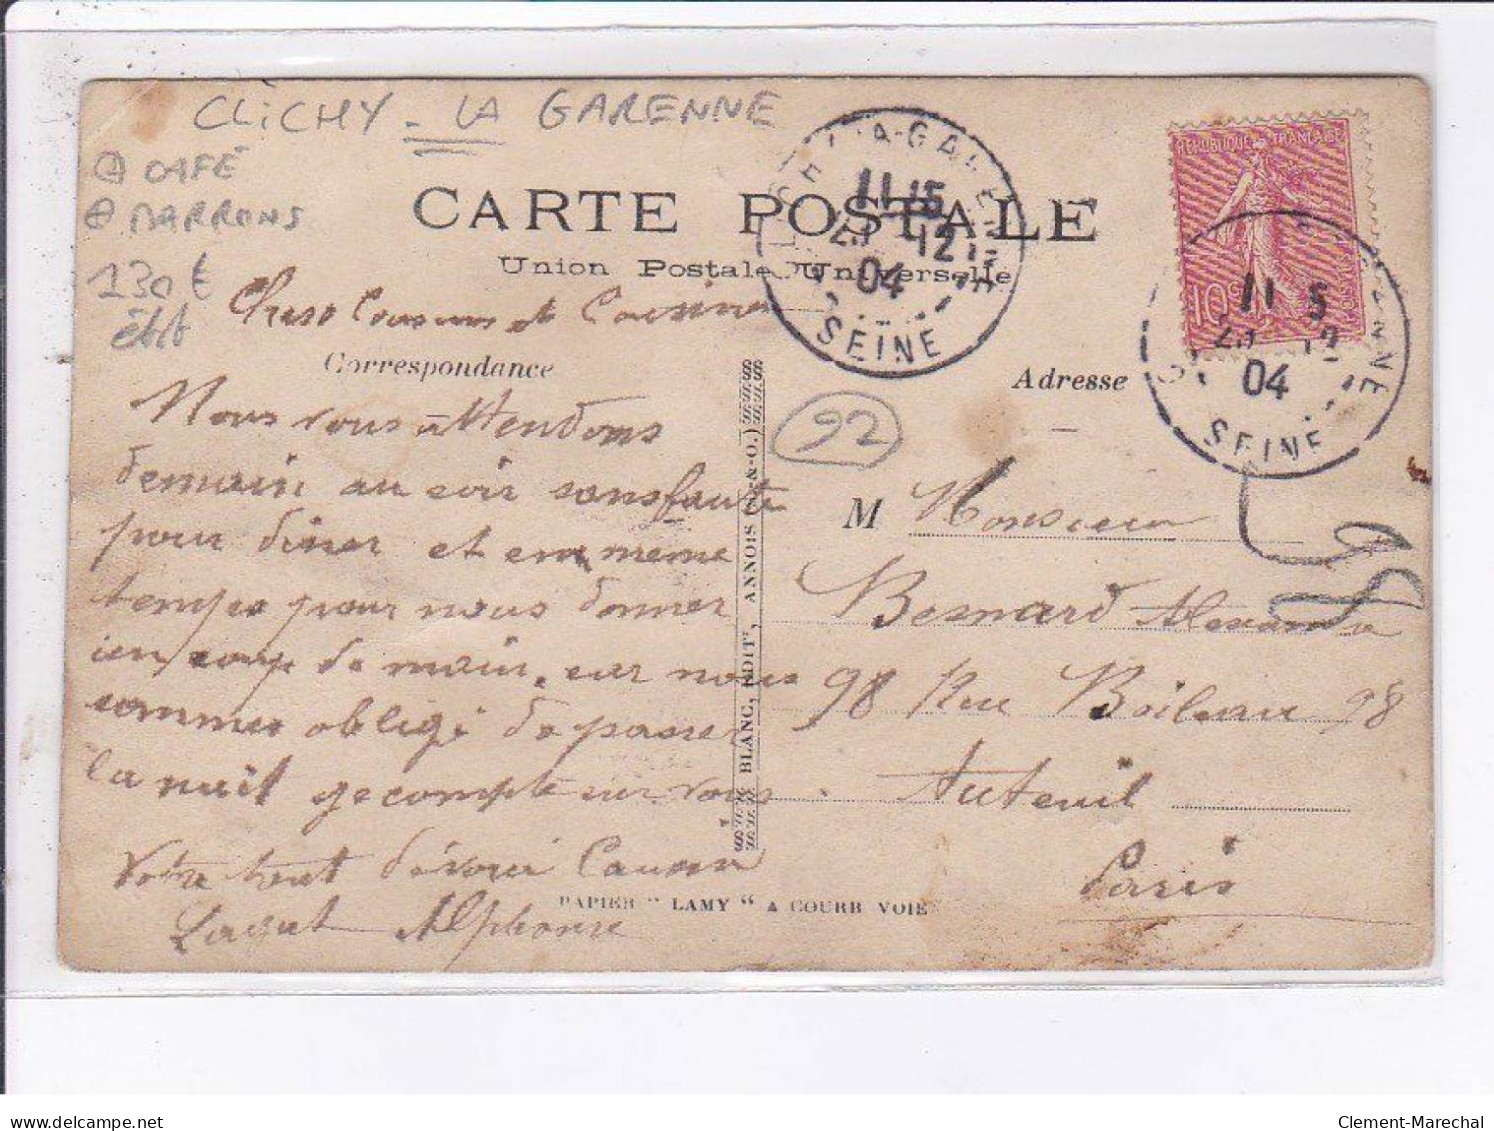 CLiCHY - LA GARENNE
CAFÉ
MARRONS
130€
CARTE POSTALE
Union Postale Universelle
Chers Cousins et Cousine
Correspondance
Adresse
Nous vous attendons
demain au soir sans faute
pour diner et en même
temps pour nous donner
un coup de main, car nous
sommes obligé de passer
la nuit je compte sur vous
Votre tout dévoué Cousin
Alphonse
92
BLANC, EDIT', ANNOIS (S.-&-O.)
PAPIER " LAMY " A COURB VOIE
M Monsieur
Besnard Alexandre
98 Rue Boileau 98
Auteuil
Paris
REPUBLIQUE FRANÇAISE
10c
LA-GARENNE
11 15
12
04
SEINE
11 5
12
04
SEINE
delcampe.net
Clement-Marechal